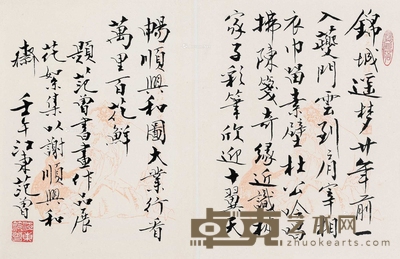 錦城遥夢廿年前一
入夔門雲到肩宰相
衣巾留素壁杜公吟
拂陳箋奇緣近識楊
家子彩筆欣迎十翼天
暢順興和圖大業行看
萬里百花鮮
題范曾書畫作品展
花絮集以謝順興和
齋 壬午江東范曾
卓克艺术网
zhuokearts.com